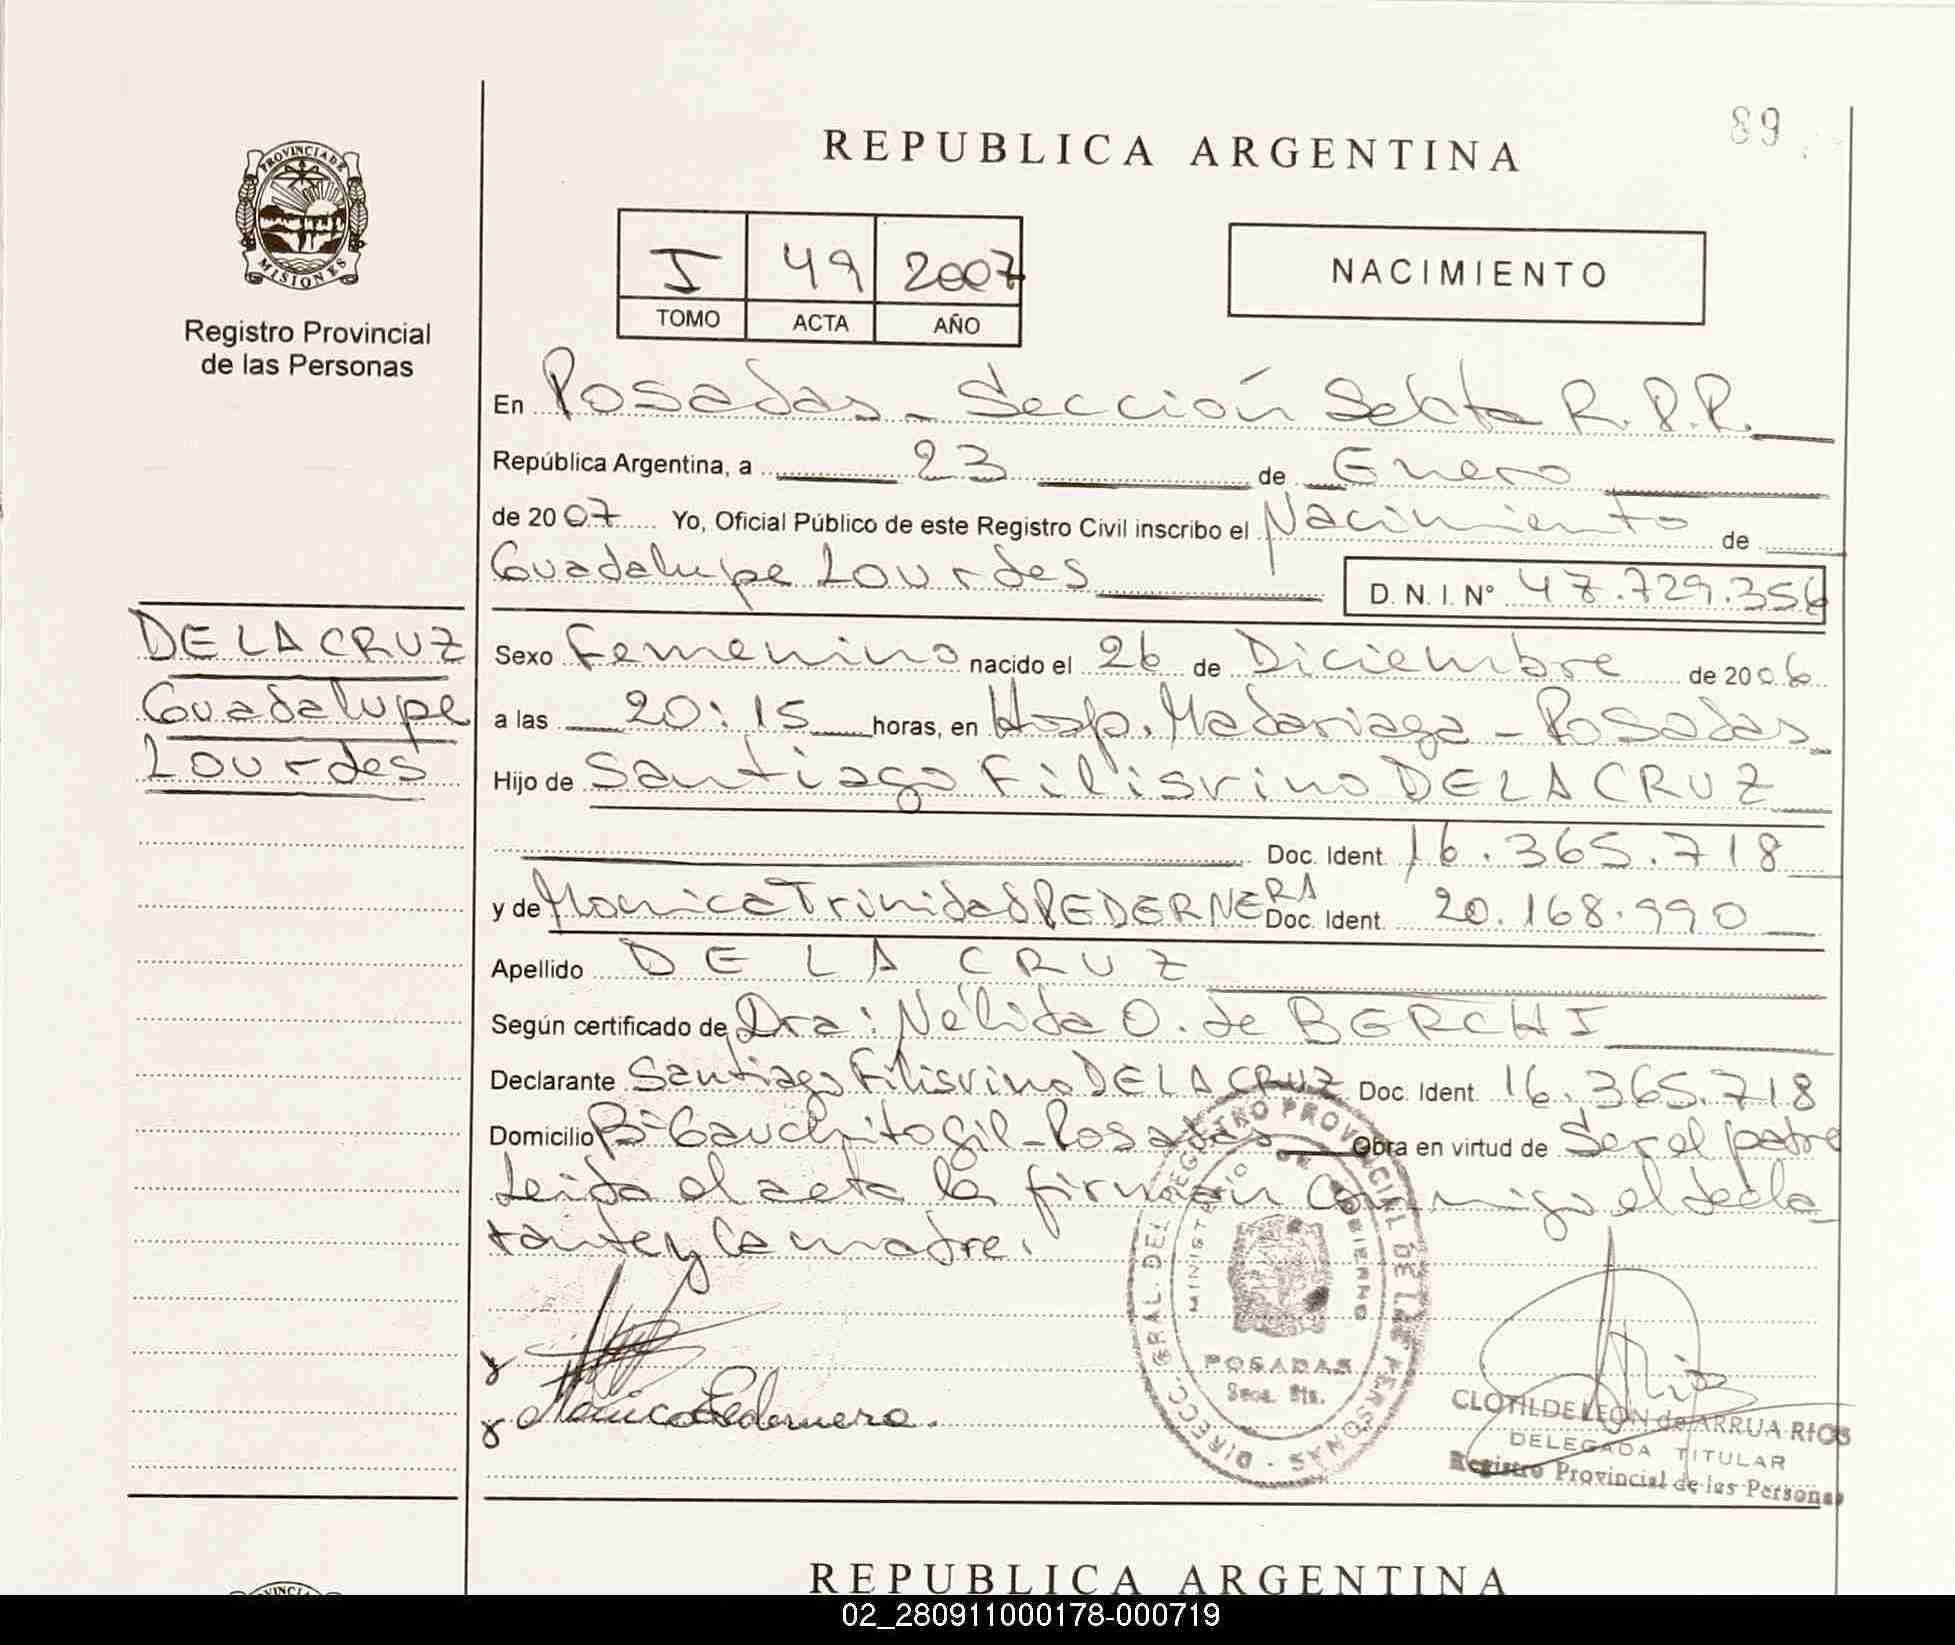 89
REPUBLICA ARGENTINA
PROVINCIA DE
MISIONES
Registro Provincial
de las Personas
I 49 2007
TOMO ACTA AÑO
NACIMIENTO
En Posadas - Sección Sexta R.P.P.
República Argentina, a 23 de Enero
de 2007 Yo, Oficial Público de este Registro Civil inscribo el Nacimiento de
Guadalupe Lourdes D.N.I. N° 47.729.356
DE LA CRUZ
Guadalupe
Lourdes
Sexo Femenino nacido el 26 de Diciembre de 2006
a las 20:15 horas, en Hosp. Madariaga - Posadas
Hijo de Santiago Filisvino DE LA CRUZ
Doc. Ident. 16.365.718
y de Monica Trinidad PEDERNERA Doc. Ident. 20.168.990
Apellido DE LA CRUZ
Según certificado de Dra: Nélida O. de BERCHI
Declarante Santiago Filisvino DE LA CRUZ Doc. Ident. 16.365.718
Domicilio B° Gauchito Gil - Posadas Obra en virtud de Ser el padre
Leida el acta la firman conmigo el decla-
rante y la madre.
DIRECC. GRAL. DEL REGISTRO PROVINCIAL DE LAS PERSONAS
MINISTERIO DE GOBIERNO
POSADAS
Secc. 6ta.
Monica Pedernera.
CLOTILDE LEON de ARRUA RIOS
DELEGADA TITULAR
Registro Provincial de las Personas
REPUBLICA ARGENTINA
02_280911000178-000719